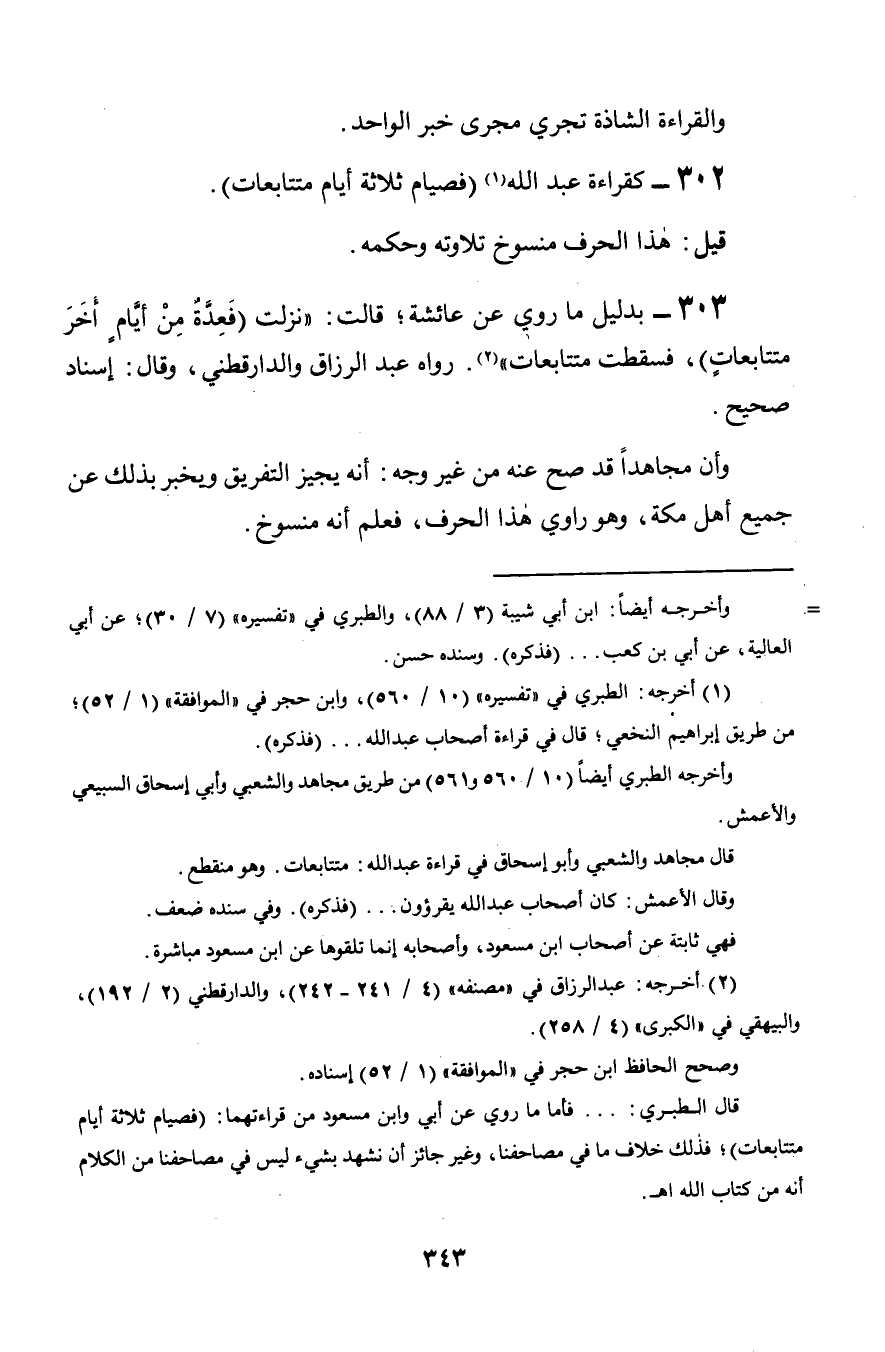 والقراءة الشاذة تجري مجرى خبر الواحد.
٣٠٢ ــ كقراءة عبد الله(١) (فصيام ثلاثة أيام متتابعات).
قيل: هٰذا الحرف منسوخ تلاوته وحكمه.
٣٠٣ ــ بدليل ما روي عن عائشة؛ قالت: «نزلت (فَعِدَّةٌ مِنْ أيَّامٍ أُخَرَ
متتابعاتٍ)، فسقطت متتابعات»(٢). رواه عبد الرزاق والدارقطني، وقال: إسناد
صحيح.
وأن مجاهداً قد صح عنه من غير وجه: أنه يجيز التفريق ويخبر بذلك عن
جميع أهل مكة، وهو راوي هٰذا الحرف، فعلم أنه منسوخ.
= وأخرجه أيضاً: ابن أبي شيبة (٣ / ٨٨)، والطبري في «تفسيره» (٧ / ٣٠)؛ عن أبي
العالية، عن أبي بن كعب... (فذكره). وسنده حسن.
(١) أخرجه: الطبري في «تفسيره» (١٠ / ٥٦٠)، وابن حجر في «الموافقة» (١ / ٥٢)؛
من طريق إبراهيم النخعي؛ قال في قراءة أصحاب عبدالله... (فذكره).
وأخرجه الطبري أيضاً (١٠ / ٥٦٠ و٥٦١) من طريق مجاهد والشعبي وأبي إسحاق السبيعي
والأعمش.
قال مجاهد والشعبي وأبو إسحاق في قراءة عبدالله: متتابعات. وهو منقطع.
وقال الأعمش: كان أصحاب عبدالله يقرؤون... (فذكره). وفي سنده ضعف.
فهي ثابتة عن أصحاب ابن مسعود، وأصحابه إنما تلقوها عن ابن مسعود مباشرة.
(٢) أخرجه: عبدالرزاق في «مصنفه» (٤ / ٢٤١ ـ ٢٤٢)، والدارقطني (٢ / ١٩٢)،
والبيهقي في «الكبرى» (٤ / ٢٥٨).
وصحح الحافظ ابن حجر في «الموافقة» (١ / ٥٢) إسناده.
قال الطبري: ... فأما ما روي عن أبي وابن مسعود من قراءتهما: (فصيام ثلاثة أيام
متتابعات)؛ فذٰلك خلاف ما في مصاحفنا، وغير جائز أن نشهد بشيء ليس في مصاحفنا من الكلام
أنه من كتاب الله اهـ.
٣٤٣